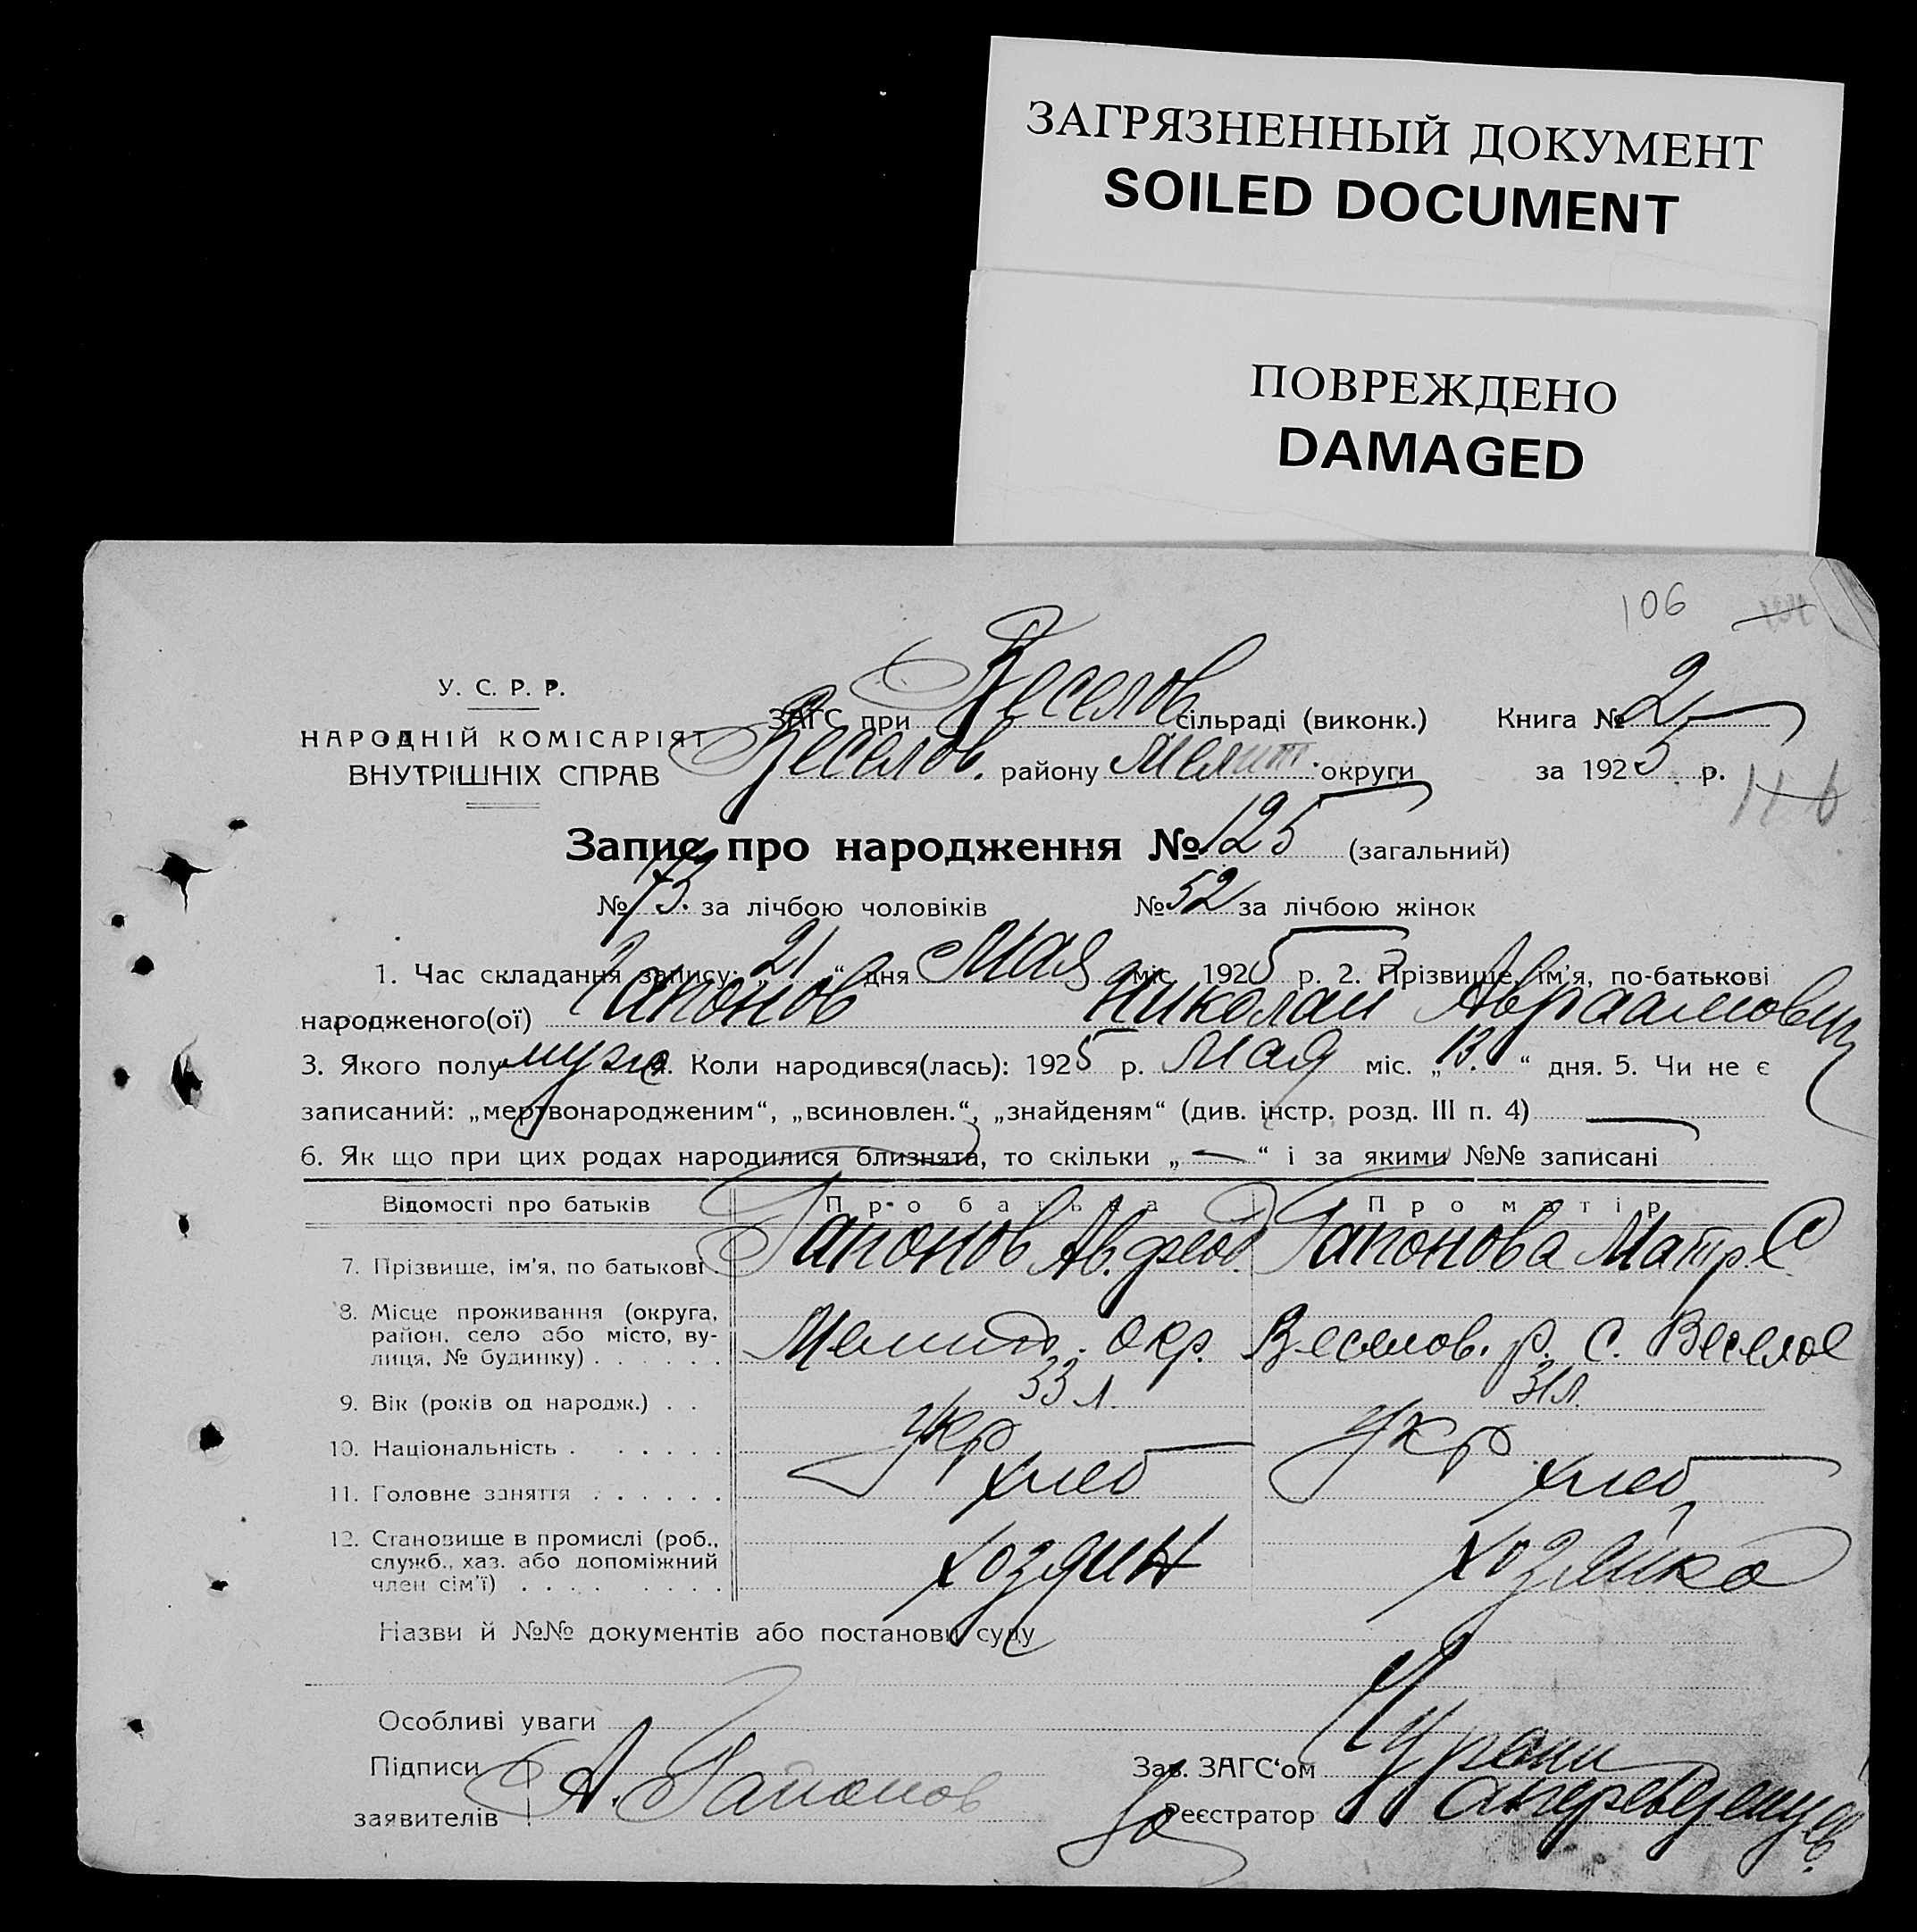 ЗАГРЯЗНЕННЫЙ ДОКУМЕНТ
SOILED DOCUMENT
ПОВРЕЖДЕНО
DAMAGED
106
У. С. Р. Р.
НАРОДНІЙ КОМІСАРІЯТ
ВНУТРІШНІХ СПРАВ
ЗАГС при Веселов сільраді (виконк.) Книга № 2
Веселов. району Мелит. округи за 1925 р.
Запис про народження № 125 (загальний)
№ 73. за лічбою чоловіків № 52 за лічбою жінок
1. Час складання запису: „21“ дня Мая міс. 1925 р. 2. Прізвище, ім'я, по-батькові
народженого(ої) Гапонов Николай Авраамович
3. Якого полу муж. Коли народився(лась): 1925 р. Мая міс. „13.“ дня. 5. Чи не є
записаний: „мертвонародженим“, „всиновлен.“, „знайденям“ (див. інстр. розд. III п. 4) —
6. Як що при цих родах народилися близнята, то скільки „—“ і за якими №№ записані
Відомості про батьків Про батька Про матір
7. Прізвище, ім'я, по батькові . Гапонов Ав. Феод. Гапонова Матр. С
8. Місце проживання (округа,
район, село або місто, ву-
лиця, № будинку) . . . . . . Мелит. окр. Веселов. р. с. Веселое
9. Вік (років од народж.) . . 33 л. 31 л.
10. Національність . . . . . . Укр Укр
11. Головне заняття . . . . . . хлеб хлеб
12. Становище в промислі (роб.,
служб., хаз. або допоміжний
член сім'ї) . . . . . . . . . хозяин хозяйка
Назви й №№ документів або постанови суду
Особливі уваги
Підписи
заявителів А. Гапонов
Зав. ЗАГС'ом
Реєстратор